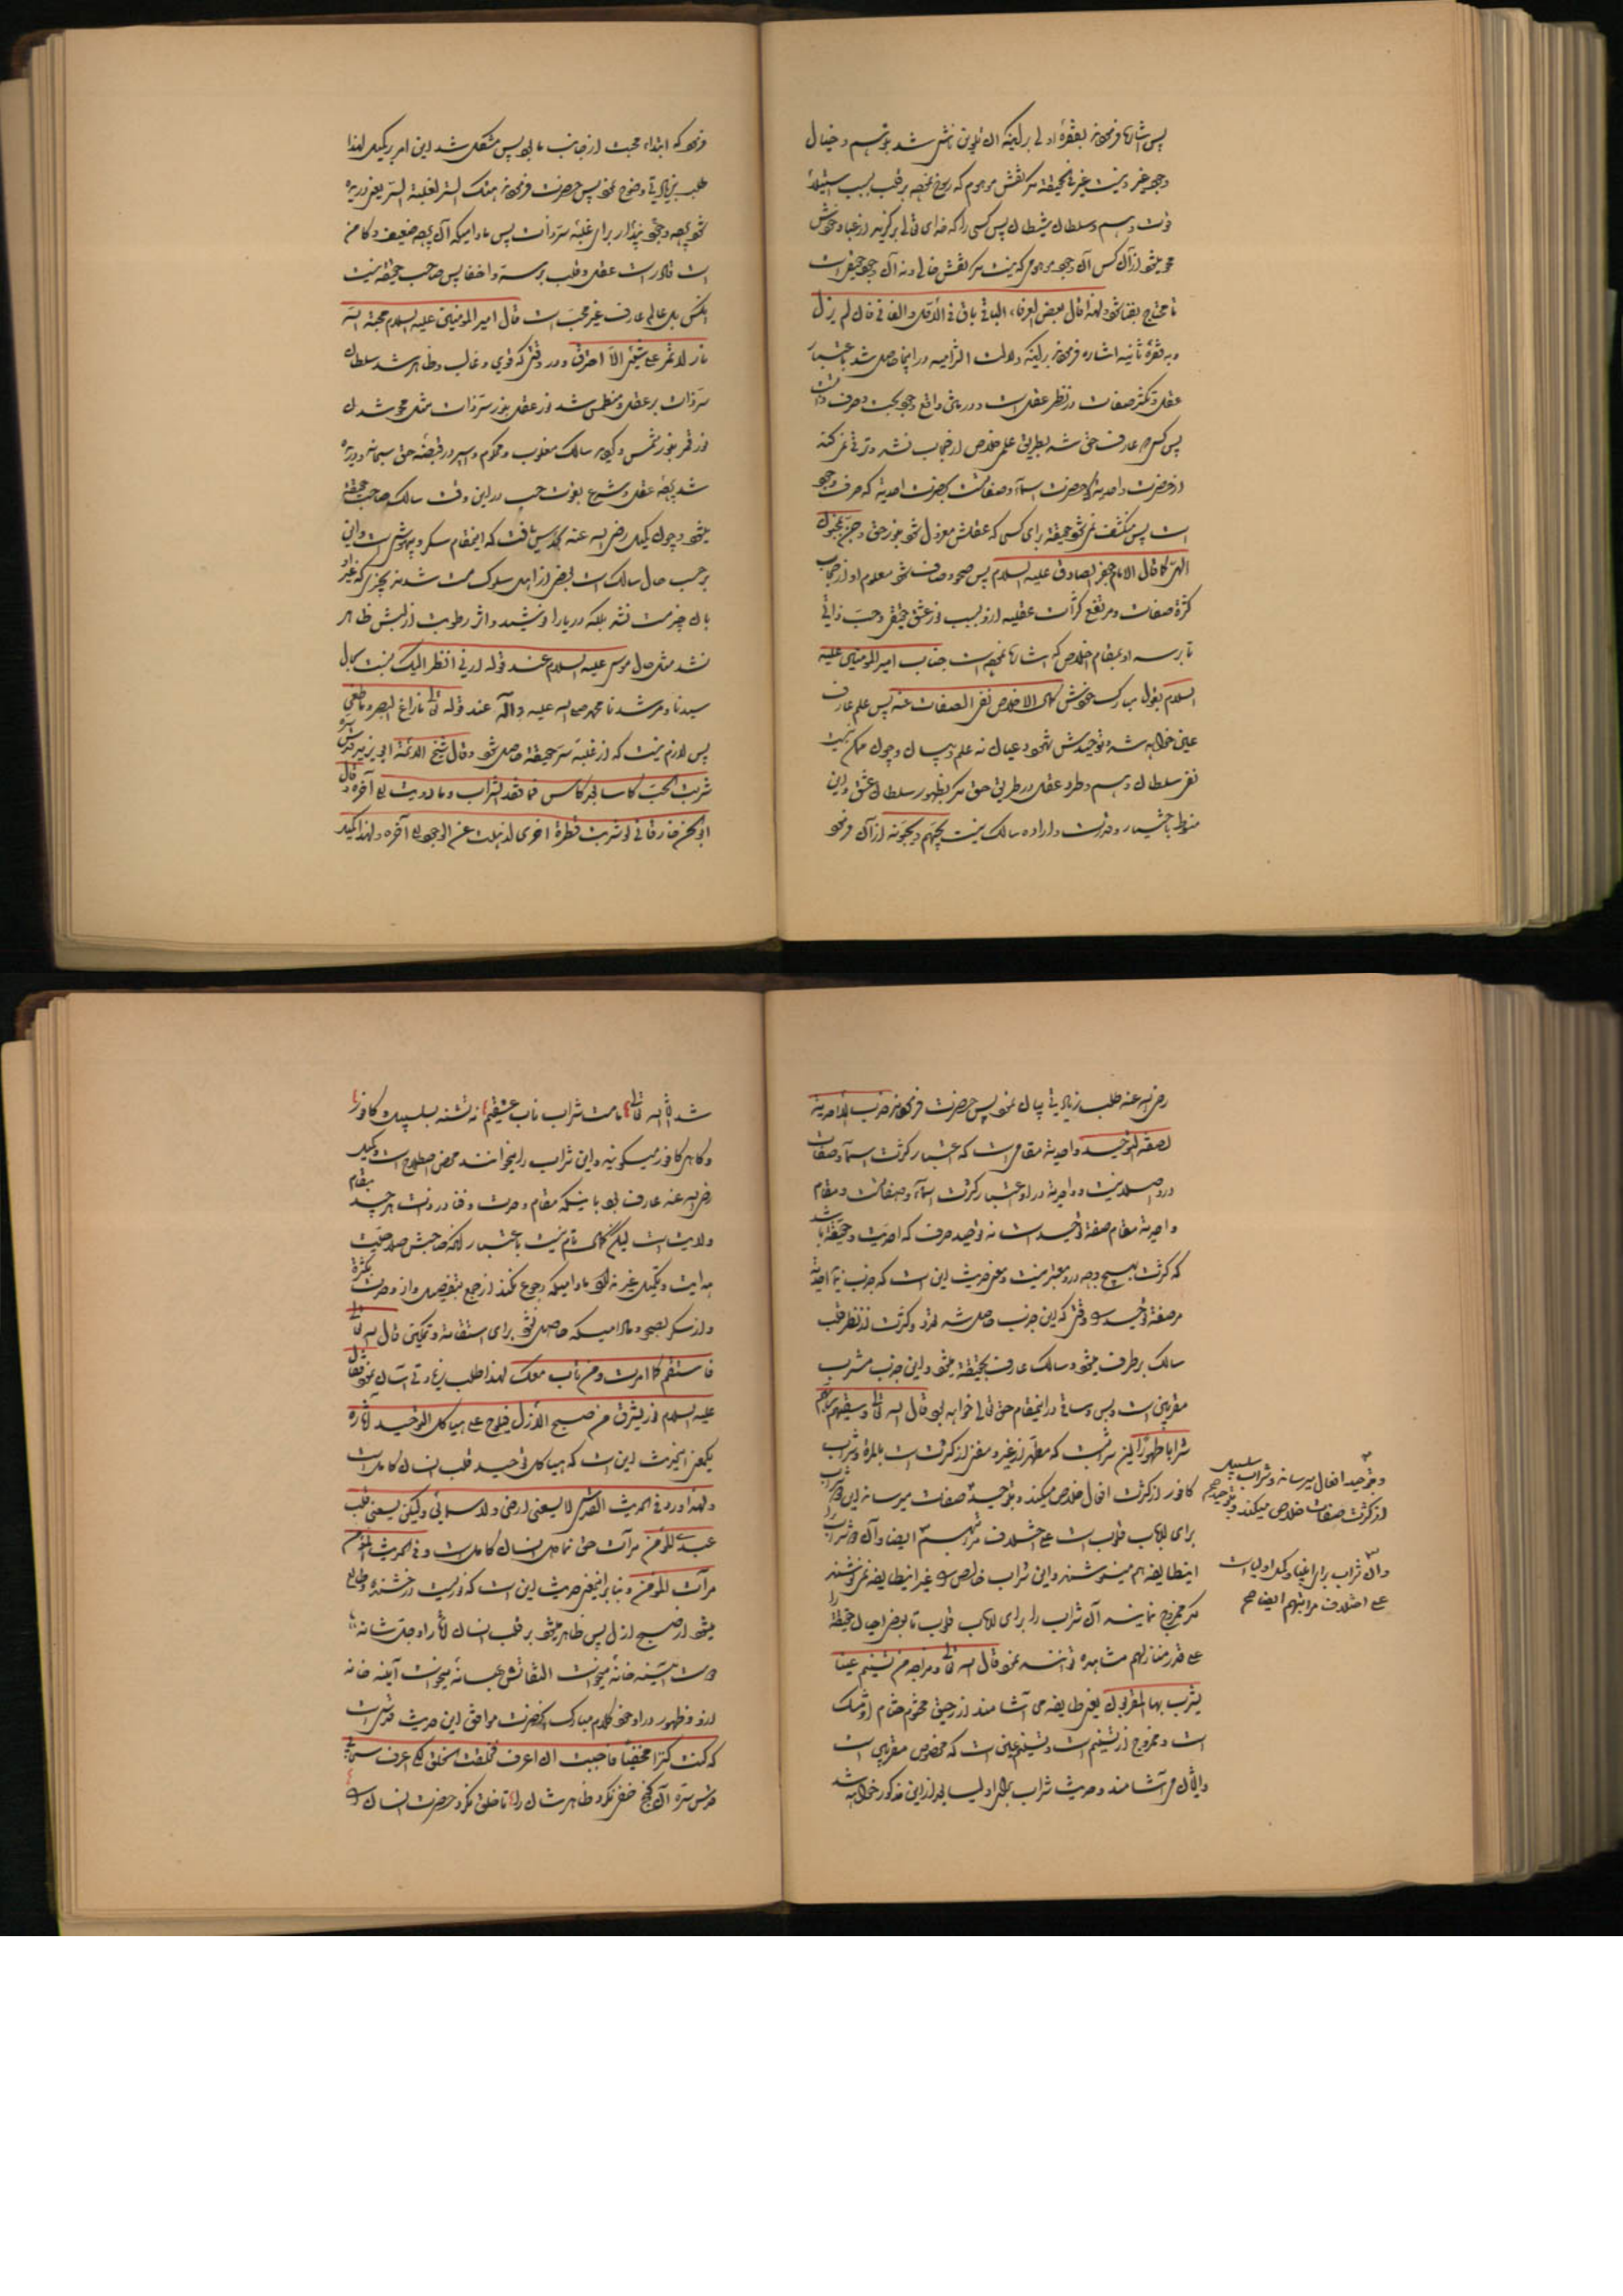 پس اشاره فرمودند بفقره اولی بر اینکه آن تلوین ناشی شد بتوهم و خیال
وجود غیر و نیست غیر فی الحقیقه مگر نقش موهوم که رسوخ نموده بر قلب بسبب استیلاء
قوت وهم و سلطان شیطان پس کسی را که خدای تعالی برگزیند از عباد خودش
محو میشود از آن کس آن وجود موهوم که نیست مگر نقش خیالی و نه آن وجود حقیقی است
تا محتاج بفنا شود ولهذا قال بعض العرفاء الباقی باق فی الازل والفانی فان لم یزل
و به فقره ثانیه اشاره فرمودند بر اینکه دلالت التزامیه در اینجا حاصل شد باعتبار
عقل و تکثر صفات در نظر عقل است و در واقع وجود بحت و صرف ذات
پس کسیکه عارف حق شد بطریق علمی خلاص از حجاب نشد و ترقی نمیکند
از حضرت واحدیة که حضرت اسماء و صفات است بحضرت احدیة که صرف وجود
است پس منکشف نمیشود حقیقة برای کسی که عقلش معزول شود بنور حق و جن بجنون
الهی کما قال الامام جعفر الصادق علیه السلام پس صحو و صاف شود معلوم او از حجاب
کثرة صفات و مرتفع کثرات عقلیه از او بسبب نور عشق حقیقی و حب ذاتی
تا برسد او بمقام اخلاص که اشاره نموده است جناب امیر المومنین علیه
السلام بقول مبارک خودش کمال الاخلاص نفی الصفات عنه پس علم عارف
عین خواهد شد و توحیدش شهود و عیان نه علم و بیان و چون ممکن نیست
نفی سلطان وهم و طرد عقل در طریق حق مگر بظهور سلطان عشق و این
منوط باختیار و قدرت و اراده سالک نیست یحبهم ویحبونه از آن فرمود
فرمود که ابتداء محبت از جانب ما بود پس مشکل شد این امر بر کمیل لهذا
طلب زیادتی وضوح نمود پس حضرت فرمودند هتک الستر لغلبة السر یعنی دریده
شود پرده وجود پندار برای غلبه سر ذات پس مادامیکه آن پرده ضعیف و کامن
است قادر است عقل و قلب بر ستر و اخفا پس صاحب حقیقة نیست
آنکس بل عالم عارف غیر محب است قال امیر المومنین علیه السلام محبة الله
نار لا تمر علی شیئی الا احترق و در وقتی که قوی و غالب و ظاهر شد سلطان
سر ذات بر عقل و منطمس شد نور عقل بنور سر ذات مثل محو شدن
نور قمر بنور شمس و گردید سالک مغلوب و محکوم و اسیر در قبضه حق سبحانه و دریده
شد پرده عقل و شرع بقوت حب در این وقت سالک صاحب حقیقة
میشود و چون کمیل رضی الله عنه بحدس یافت که اینمقام سکر و بیهوشی است و این
بر حسب حال سالک است بعضی از اهل سلوک مست شدند بچیزی که غیر او
بآن چیز مست نشد بلکه دریا را نوشید و اثر رطوبت از لبش ظاهر
نشد مثل حال موسی علیه السلام عند قوله ارنی انظر الیک نسبت بحال
سیدنا و مرشدنا محمد صلی الله علیه و آله عند قوله تعالی ما زاغ البصر وما طغی
پس لازم نیست که از غلبه سر حقیقة حاصل شود وقال شیخ الائمة ابی یزید قدس سره
شربت الحب کاسا بعد کاس فما نفد الشراب وما رویت الی آخره وقال
ابو الحسن خارقانی لو شربت قطرة اخری لذهبت عن الوجود الی آخره ولهذا کمیل
رضی الله عنه طلب زیادتی بیان نمود پس حضرت فرمودند جذب الاحدیة
لصفة التوحید واحدیة مقامی است که اعتبار کثرت اسماء و صفات
در او اصلا نیست و واحدیة در او اعتبار کثرت اسماء و صفاتست و مقام
واحدیة مقام صفة توحید است نه توحید صرف که احدیت و حقیقة باشد
که کثرت بهیچ وجه در او معتبر نیست و معنی حدیث این است که جذب نماید احدیة
مر صفة توحید و وقتی که این جذب حاصل شد فرد و کثرت از نظر قلب
سالک برطرف میشود و سالک عارف بحقیقة میشود و این جذب مشرب
مقربین است و بس و ساقی در اینمقام حق تعالی خواهد بود قال الله تعالی وسقیهم ربهم
شرابا طهورا این شرابیست که مطهر از غیر و مفنی از کثرت است بالمرة و شراب
کافور از کثرت افعال خلاص میکند و بتوحید صفات میرساند این دو شراب
برای ارباب قلوب است علی اختلاف مراتبهم ایضا و آن دو شراب را
اینطایفه هم مینوشند و این شراب خالص و غیر اینطایفه نمی نوشند
مگر ممزوج نمایند آن شراب را برای ارباب قلوب تا بعض احیان حقیقة را
علی قدر منازلهم مشاهده توانند نمود قال الله تعالی ومزاجه من تسنیم عینا
یشرب بها المقربون یعنی طایفه می آشامند از رحیق مختوم ختام او مسک
است و ممزوج از تسنیم است و تسنیم عینی است که مخصوص مقربین است
و از آن می آشامند و حدیث شراب برای اولیا بعد از این مذکور خواهد شد
و بتوحید افعال میرساند و شراب سلسبیل
از کثرت صفات خلاص میکند و بتوحید صح
و آن شراب برای انبیا و کمل اولیا است
علی اختلاف مراتبهم ایضا صح
شد انشاء الله تعالی ما مست شراب ناب عشقیم نه تشنه سلسبیل و کافور
و گاهی کافور میگویند و این شراب را میخوانند محض اصطلاح است و کمیل
رضی الله عنه عارف بود باینکه مقام وحدت و فنا در ذات هر چند مقام
ولایت است لیکن کمال تام نیست باعتبار آنکه صاحبش صلاحیت
هدایت و تکمیل غیر ندارد مادامیکه رجوع نکند از جمع بتفصیل و از وحدت بکثرة
و از سکر بصحو و مادامیکه حاصل نشود برای استقامة و تمکین قال الله تعالی
فاستقم کما امرت ومن تاب معک لهذا طلب زیادتی بیان نمود فقال
علیه السلام نور یشرق من صبح الازل فیلوح علی هیاکل التوحید آثاره
یکمعنی اینحدیث این است که هیاکل توحید قلب انسان کامل است
ولهذا ورد فی الحدیث القدسی لا یسعنی ارضی ولا سمائی ولیکن یسعنی قلب
عبدی المؤمن مرآت حق نما دل انسان کامل است وفی الحدیث المؤمن
مرآت المؤمن و بنابر اینمعنی حدیث این است که نوریست درخشنده و طالع
میشود از صبح ازل پس ظاهر میشود بر قلب انسان آثار او جل شانه
دوست آیینه خانه میخواست التفاتش بهانه میخواست آینه خانه
از نو ظهور در او خود کلام مبارک آنحضرت موافق این حدیث قدسی است
که کنت کنزا مخفیا فاحببت ان اعرف فخلقت الخلق لکی اعرف
قدس سره آن گنج خفی نکرد ظاهر شان را تا خلق نکرد حضرت انسان را